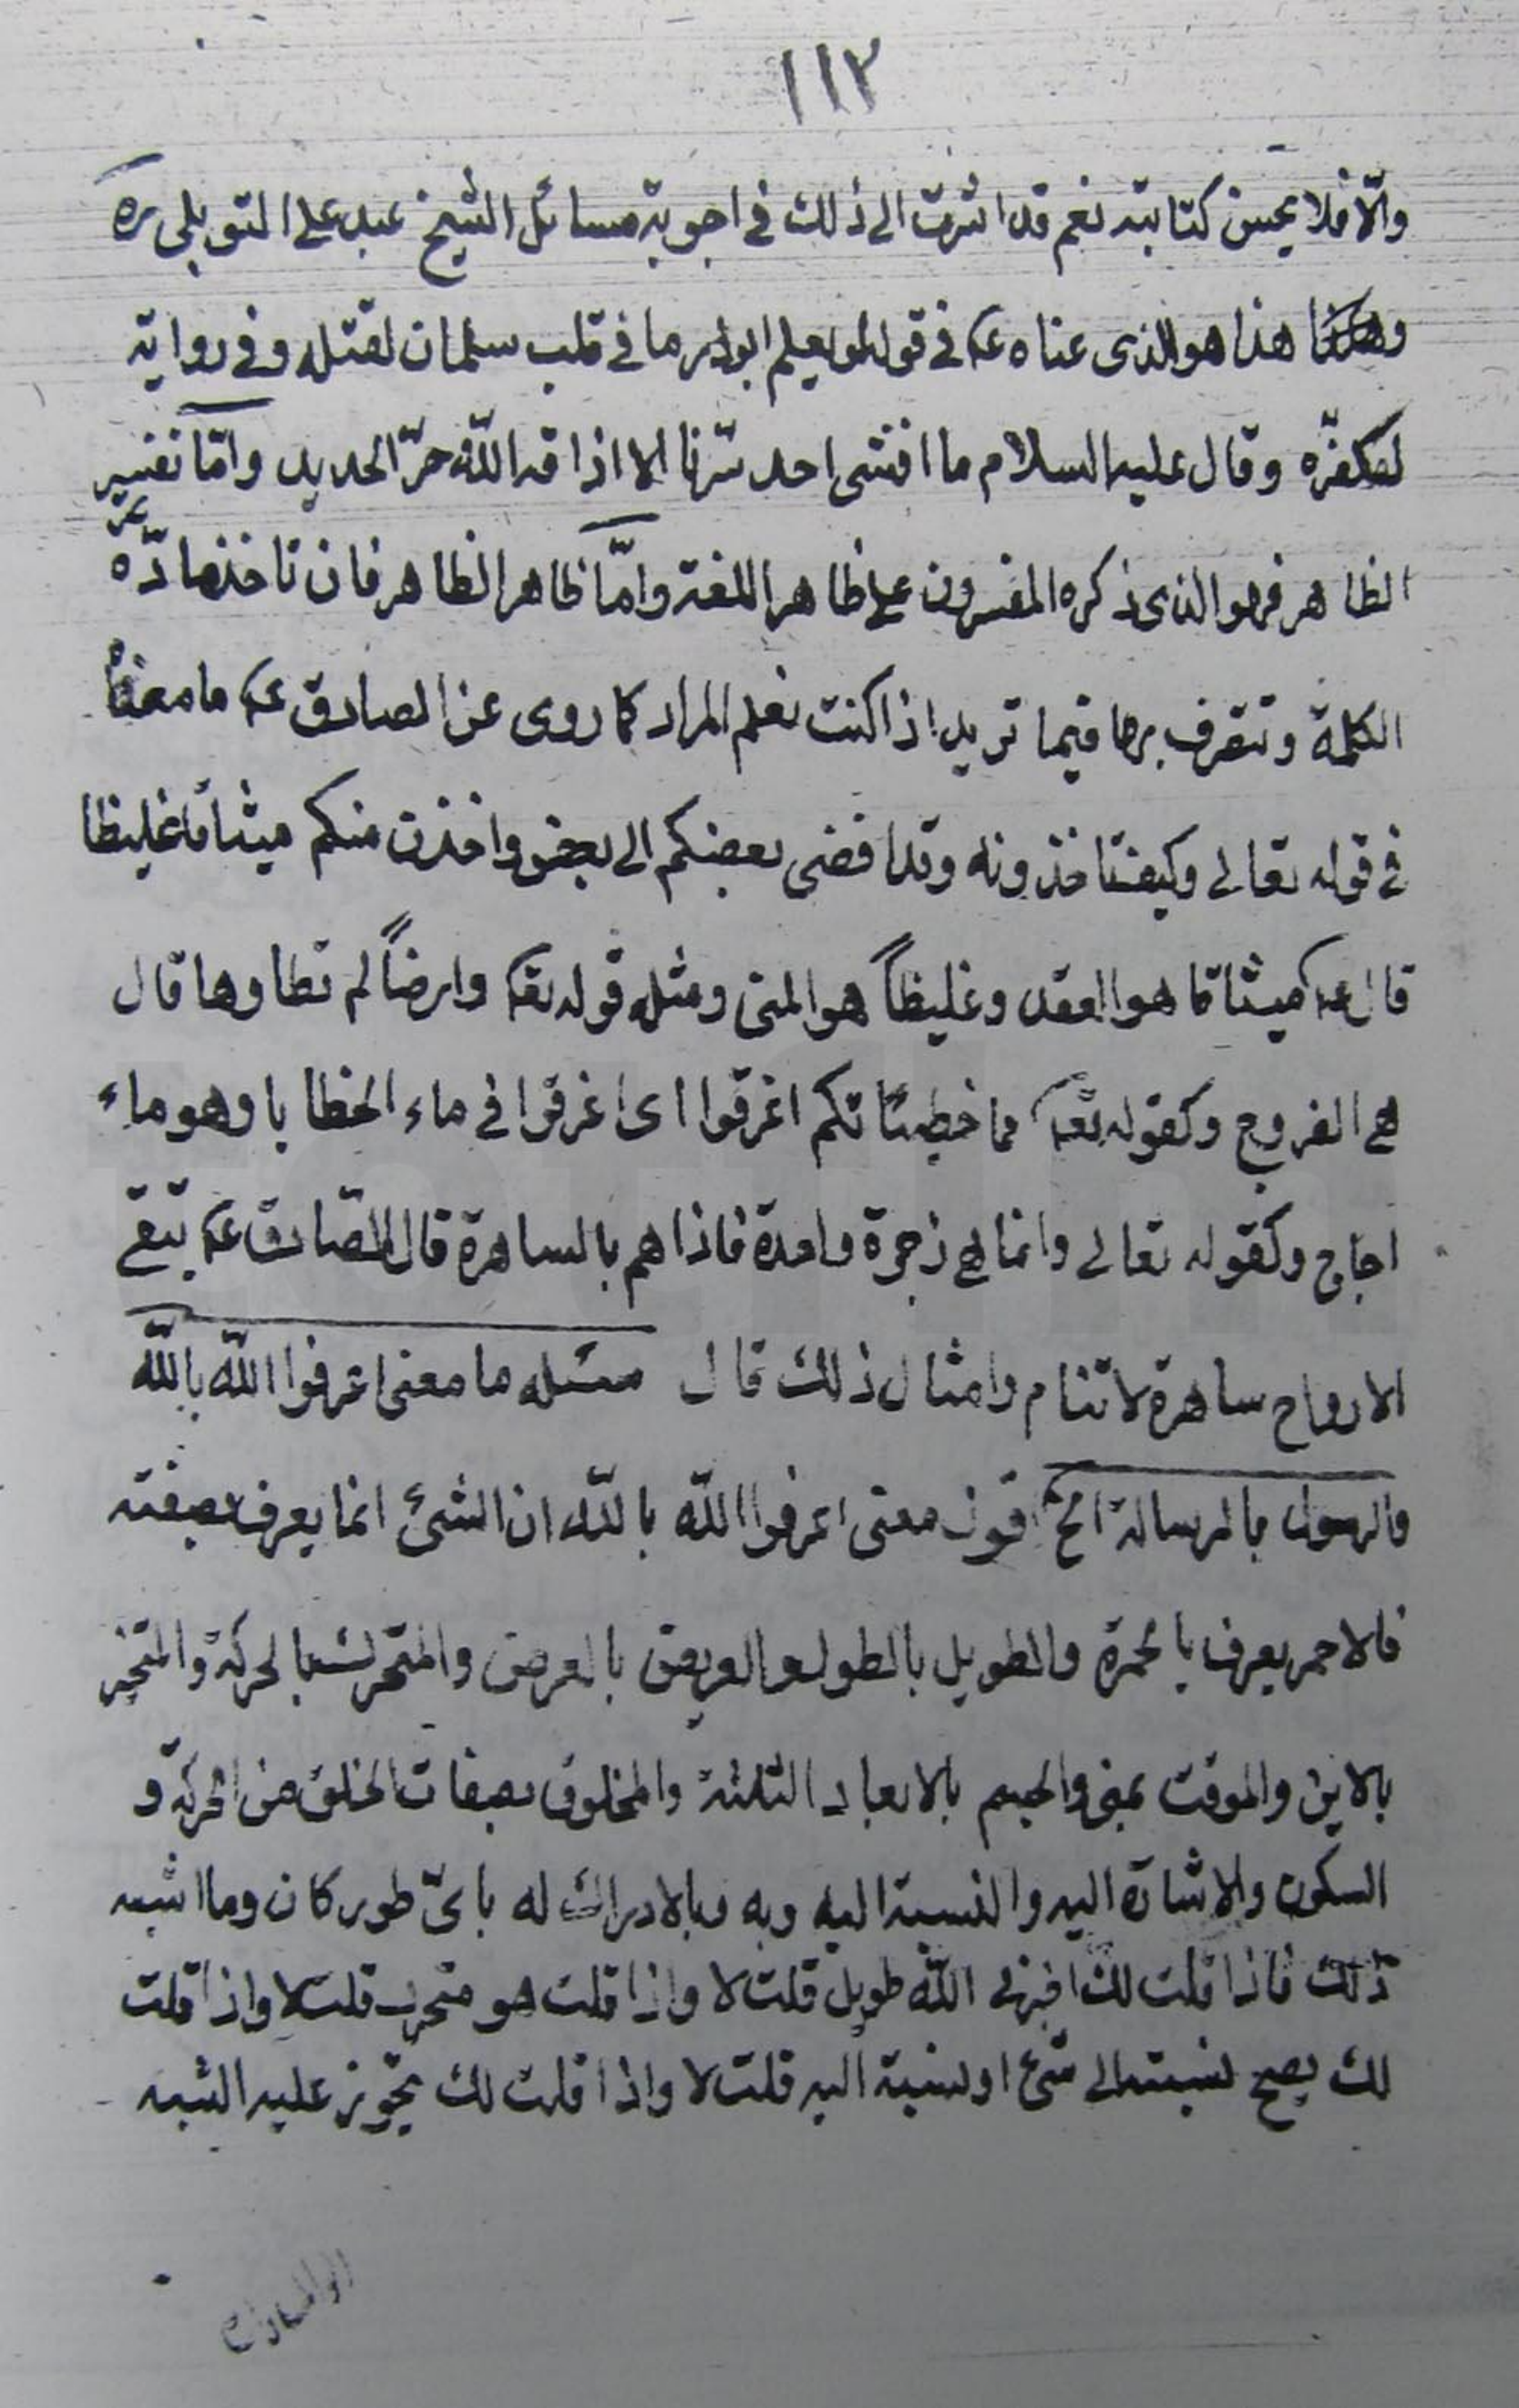 ١١٣
والّا فلا يحسن كتابته نعم قد اشرت الى ذلك في اجوبة مسائل الشيخ عبد على التوبلى ره
هذا هو الذى عناه ع في قوله لو يعلم ابوذر ما في قلب سلمان لقتله وفى رواية
لكفّره وقال عليه السلام ما افشى احد سرّنا الا اذاقه اللّه حرّ الحديد وامّا تفسير
الظاهر فهو الذى ذكره المفسرون على ظاهر اللغة وامّا ظاهر الظاهر فان تاخذ مادّه
الكلمة وتتصرف بها فيما تريد اذا كنت تعلم المراد كما روى عن الصادق ع ما معناه
في قوله تعالى وكيف تاخذونه وقد افضى بعضكم الى بعض واخذن منكم ميثاقا غليظا
قال ع ميثاقا هو العقد وغليظاً هو المنى ومثله قوله تع وارضاً لم تطاوها قال
هى الفروج وكقوله تع مما خطيئاتكم اغرقوا اى اغرقوا في ماء الخطايا وهو ماء
اجاج وكقوله تعالى وانما هى زجرة واحدة فاذا هم بالساهرة قال الصّادق ع تبقى
الارواح ساهرة لا تنام وامثال ذلك قال مسئله ما معنى اعرفوا اللّه باللّه
والرسول بالرسالة الخ اقول معنى اعرفوا اللّه باللّه ان الشئ انما يعرف بصفته
فالاحمر يعرف بالحمرة والطويل بالطول والعريض بالعرض والمتحرك بالحركة والمتحيز
بالاين والموقت بمتى والجسم بالابعاد الثلثة والمخلوق بصفات الخلق من الحركة و
السكون والاشارة اليه والنسبة اليه وبه وبالادراك له باىّ طور كان وما اشبه
ذلك فاذا قلت لك اخبرنى اللّه طويل قلت لا واذا قلت هو متحرك قلت لا واذا قلت
لك يصح نسبته الى شئ او نسبة اليه قلت لا واذا قلت لك يجوز عليه الشبه